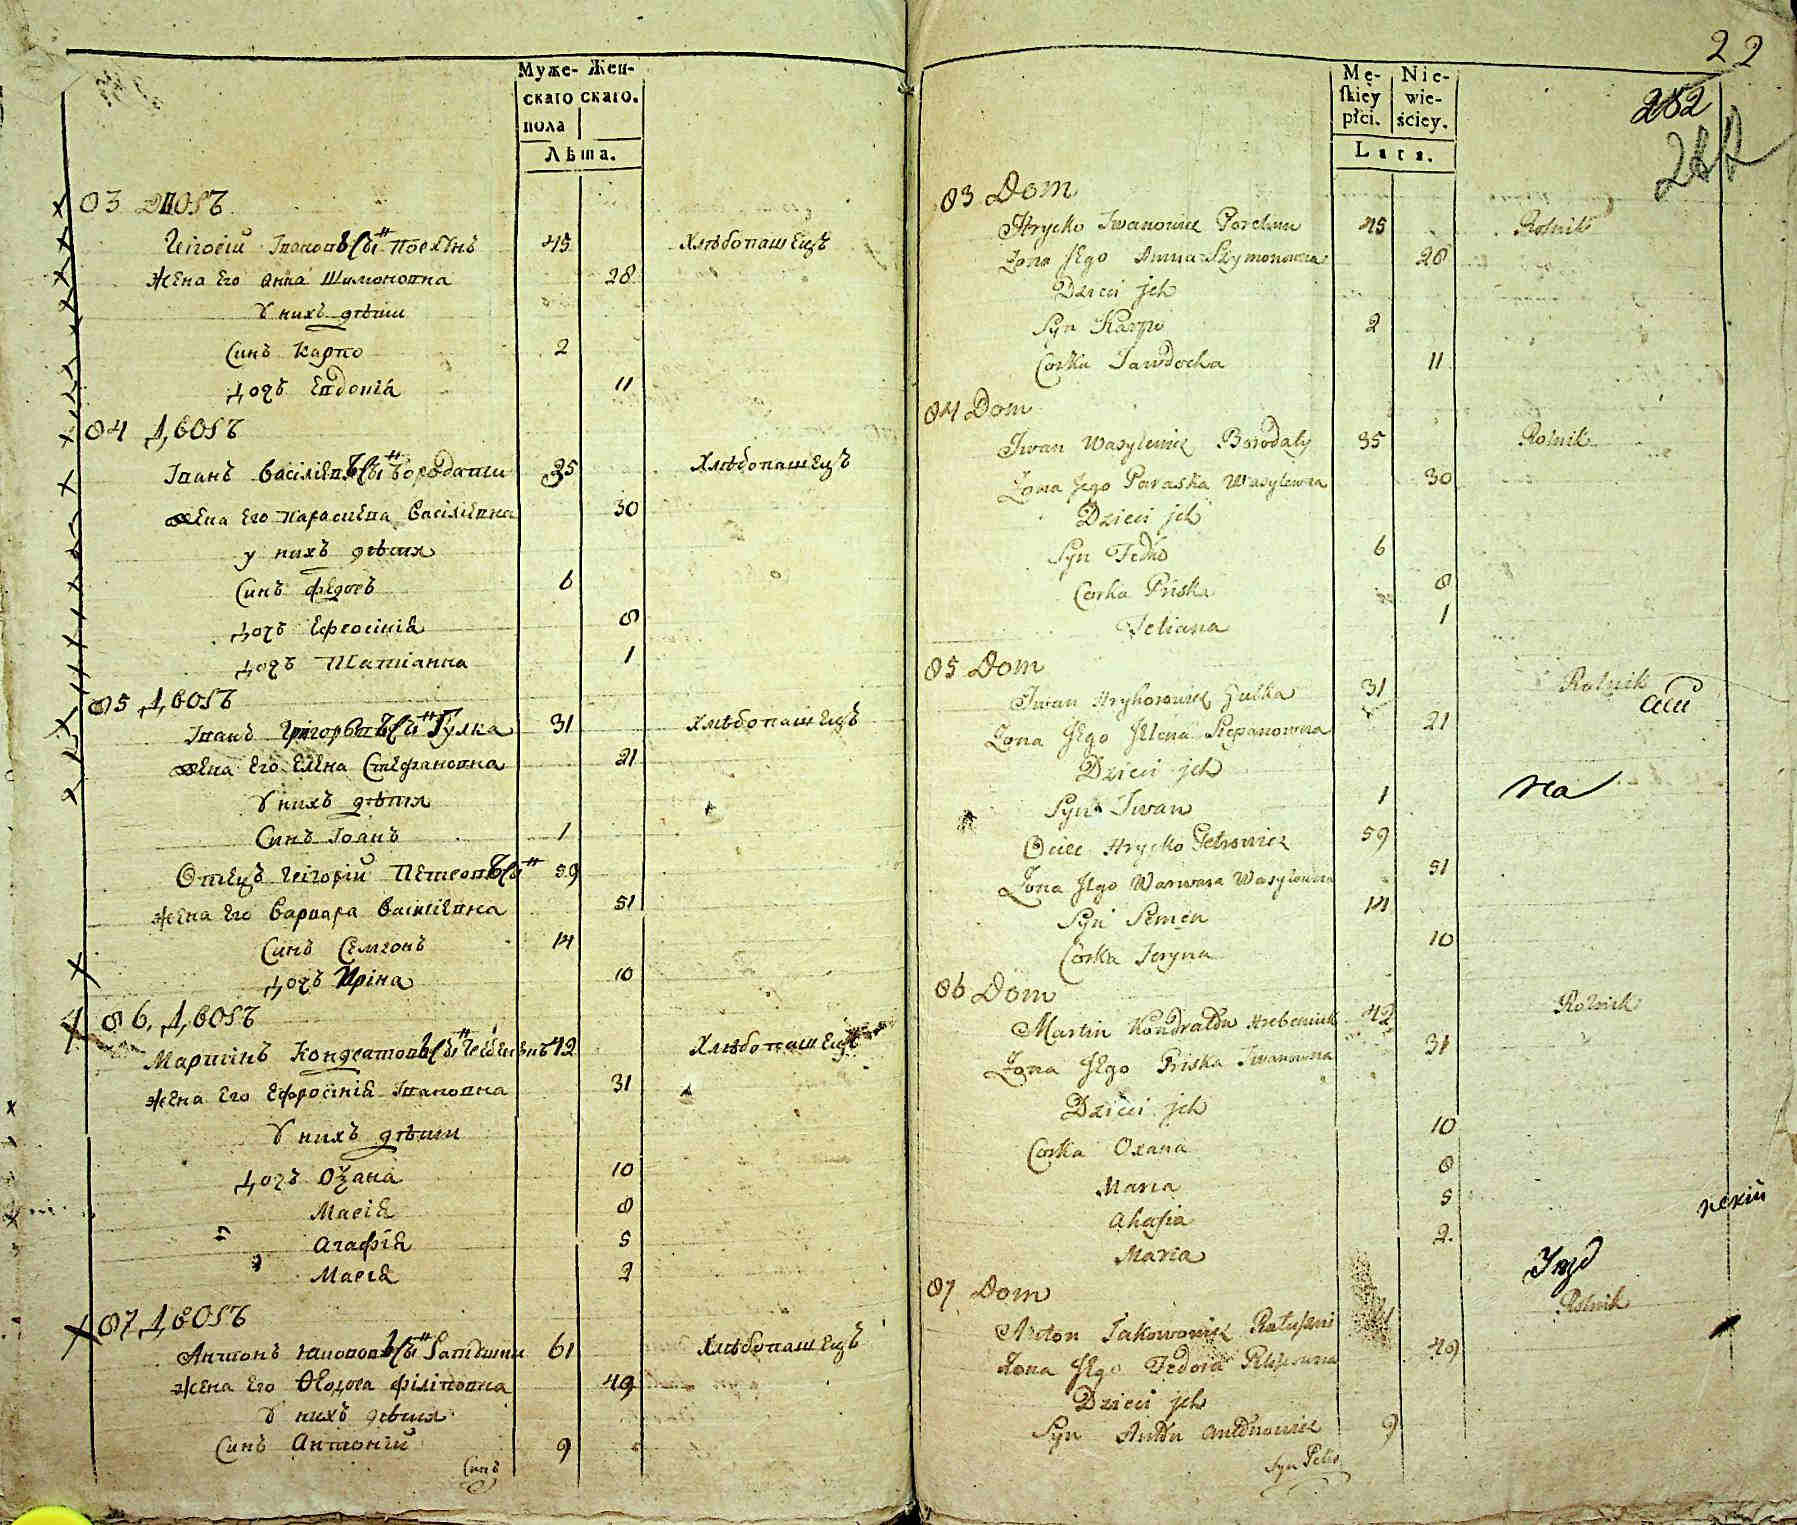 Муже- Жен-
скаго скаго.
пола
Лѣта.
83 Дворъ
Григорій Івановъ Сынъ 45 Хлѣбопашецъ
Жена Его Анна Шимоновна 28
У нихъ дѣти
Синъ Карпо 2
Дочъ Евдокіа 11
84 Дворъ
Іванъ Василіевъ Сынъ 35 Хлѣбопашецъ
Жена Его Параскева Василіевна 30
у нихъ дѣти
Синъ Федоръ 6
Дочъ Ефросинія 8
Дочъ Татіанна 1
85 Дворъ
Іванъ Григорьевъ Сынъ Гулка 31 Хлѣбопашецъ
Жена Его Елена Стефановна 21
У нихъ дѣти
Синъ Іоанъ 1
Отецъ Григорій Петровъ Сынъ 59
Жена Его Варвара Василіевна 51
Синъ Семіонъ 14
Дочъ Иріна 10
86. Дворъ
Мартінъ Кондратовъ Сынъ 42 Хлѣбопашецъ
Жена Его Ефросинія Івановна 31
У нихъ дѣти
Дочъ 10
Марія 8
Агафія 5
Марія 2
87 Дворъ
Антонъ 61 Хлѣбопашецъ
Жена Его Ѳеодора Філіповна 49
У нихъ дѣти
Синъ Антоній 9
Синъ
22
Mę- Nie-
skiey wie-
płci. ściey.
Lata.
282
83 Dom
Hrycko Iwanowicz 45 Rolnik
Zona Jego Anna Szymonowna 28
Dzieci jch
Syn Karpo 2
Corka Jawdocha 11
84 Dom
Iwan Wasylewicz Borodaty 35 Rolnik
Zona Jego Paraska Wasylewna 30
Dzieci jch
Syn Fedko 6
Corka Priska 8
Tetiana 1
85 Dom
Iwan Hryhorowicz Hulka 31 Rolnik
Zona Jego Jelena Stepanowna 21
Dzieci jch
на
Syn Iwan 1
Ociec Hrycko Petrowicz 59
Zona Jego Warwara Wasylowna 51
Syn Semen 14
Corka Jeryna 10
86 Dom
Martin Kondratow Hrebeniuk 42 Rolnik
Zona Jego Priska Iwanowna 31
Dzieci jch
Corka Oxana 10
Maria 8
Ahafia 5
Maria 2.
87 Dom
Anton Jakowowicz Rolnik
Zona Jego Fedora 49
Dzieci jch
Syn 9
Syn